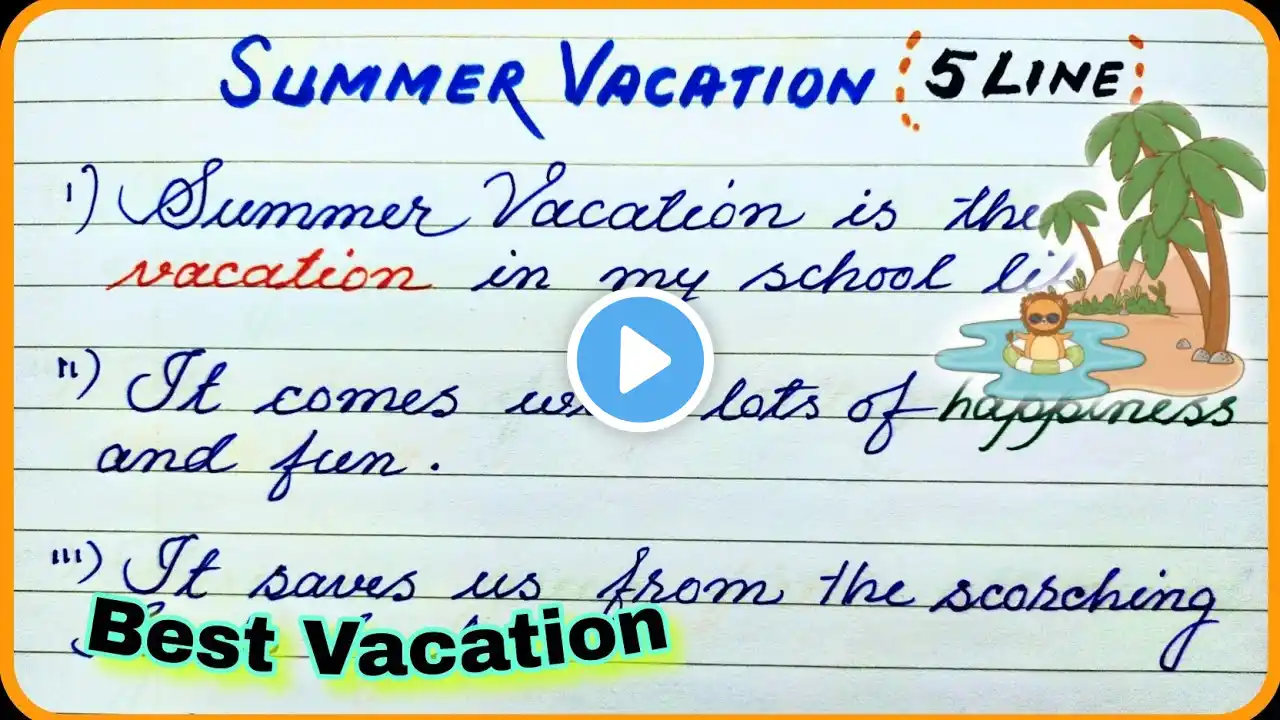 SUMMER VACATION (5 LINE)
i) Summer Vacation is the
vacation in my school
ii) It comes lots of happiness
and fun.
iii) It saves us from the scorching
Best Vacation